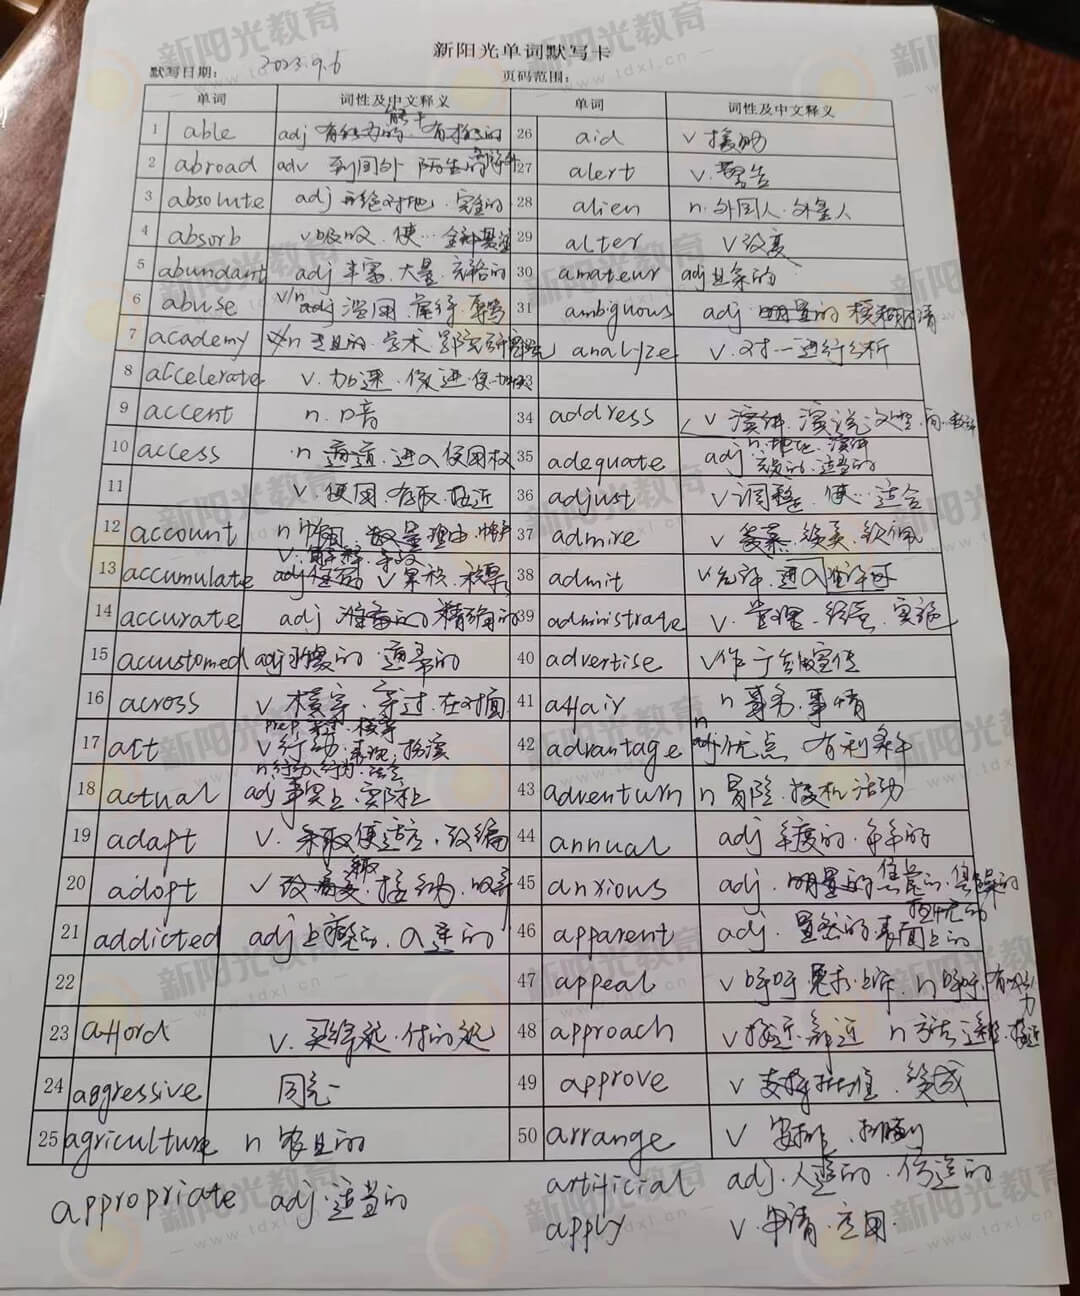 新阳光单词默写卡
默写日期: 2023.9.6 页码范围:
单词 词性及中文释义 单词 词性及中文释义
1 able adj 有能力的 有才能的 26 aid v 援助
2 abroad adv 到国外 27 alert v. 警告
3 absolute adj 绝对地 完全的 28 alien n. 外国人.外星人
4 absorb v 吸收 使… 29 alter v 改变
5 abundant adj 丰富 大量 充裕的 30 amateur adj 业余的
6 abuse v/n 滥用 虐待 辱骂 31 ambiguous adj 明显的 模糊不清
7 academy n 专业的 学术 analyze v. 对一进行分析
8 accelerate v. 加速 促进 33
9 accent n. 口音 34 address v 演讲.演说
n.地址 演讲
10 access n 通道.进入 使用权 35 adequate adj 充足的 适当的
11 v. 使用 存取 接近 36 adjust v 调整 使…适合
12 account n 账目 数量 理由 帐户 37 admire v 羡慕 赞美 钦佩
v. 解释
13 accumulate v 累积 38 admit v 允许 进入 准许
14 accurate adj 准确的 精确的 39 administrate v. 管理 经营 实施
15 accustomed adj 习惯的 通常的 40 advertise v 作广告 宣传
16 across v 横穿 穿过 在对面 41 affair n 事务 事情
17 att v 行动 表现 扮演 42 advantage n 优点 有利条件
18 actual adj 事实上 实际上 43 adventurn n 冒险 投机活动
19 adapt v. 采取 使适应 改编 44 annual adj 年度的.每年的
20 adopt v 改变 接纳 收养 45 anxious adj. 明显的 焦虑的
21 addicted adj 上瘾的 入迷的 46 apparent adj. 显然的 表面上的
22 47 appeal v 呼吁 恳求 上诉 n 呼吁 有吸引力
23 afford v. 买得起.付的起 48 approach v 接近 靠近 n 方法
24 aggressive 49 approve v 支持 批准 赞成
25 agriculture n 农业的 50 arrange v 安排
appropriate adj.适当的 artificial adj.人造的.仿造的
apply v.申请.应用.
新阳光教育
www.tdxl.cn